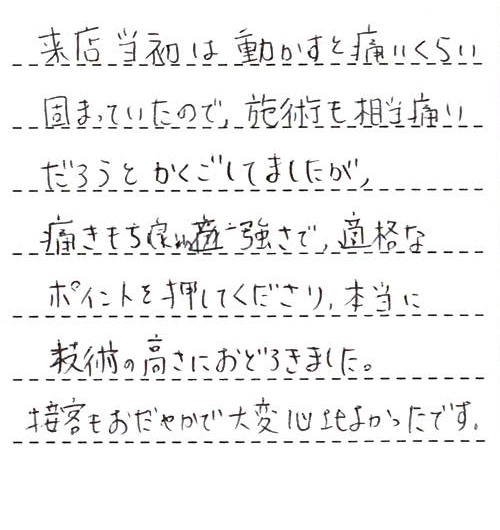 来店当初は動かすと痛いくらい
固まっていたので、施術も相当痛い
だろうとかくごしてましたが、
痛きもち強さで、適格な
ポイントを押してくださり、本当に
技術の高さにおどろきました。
接客もおだやかで大変心地よかったです。